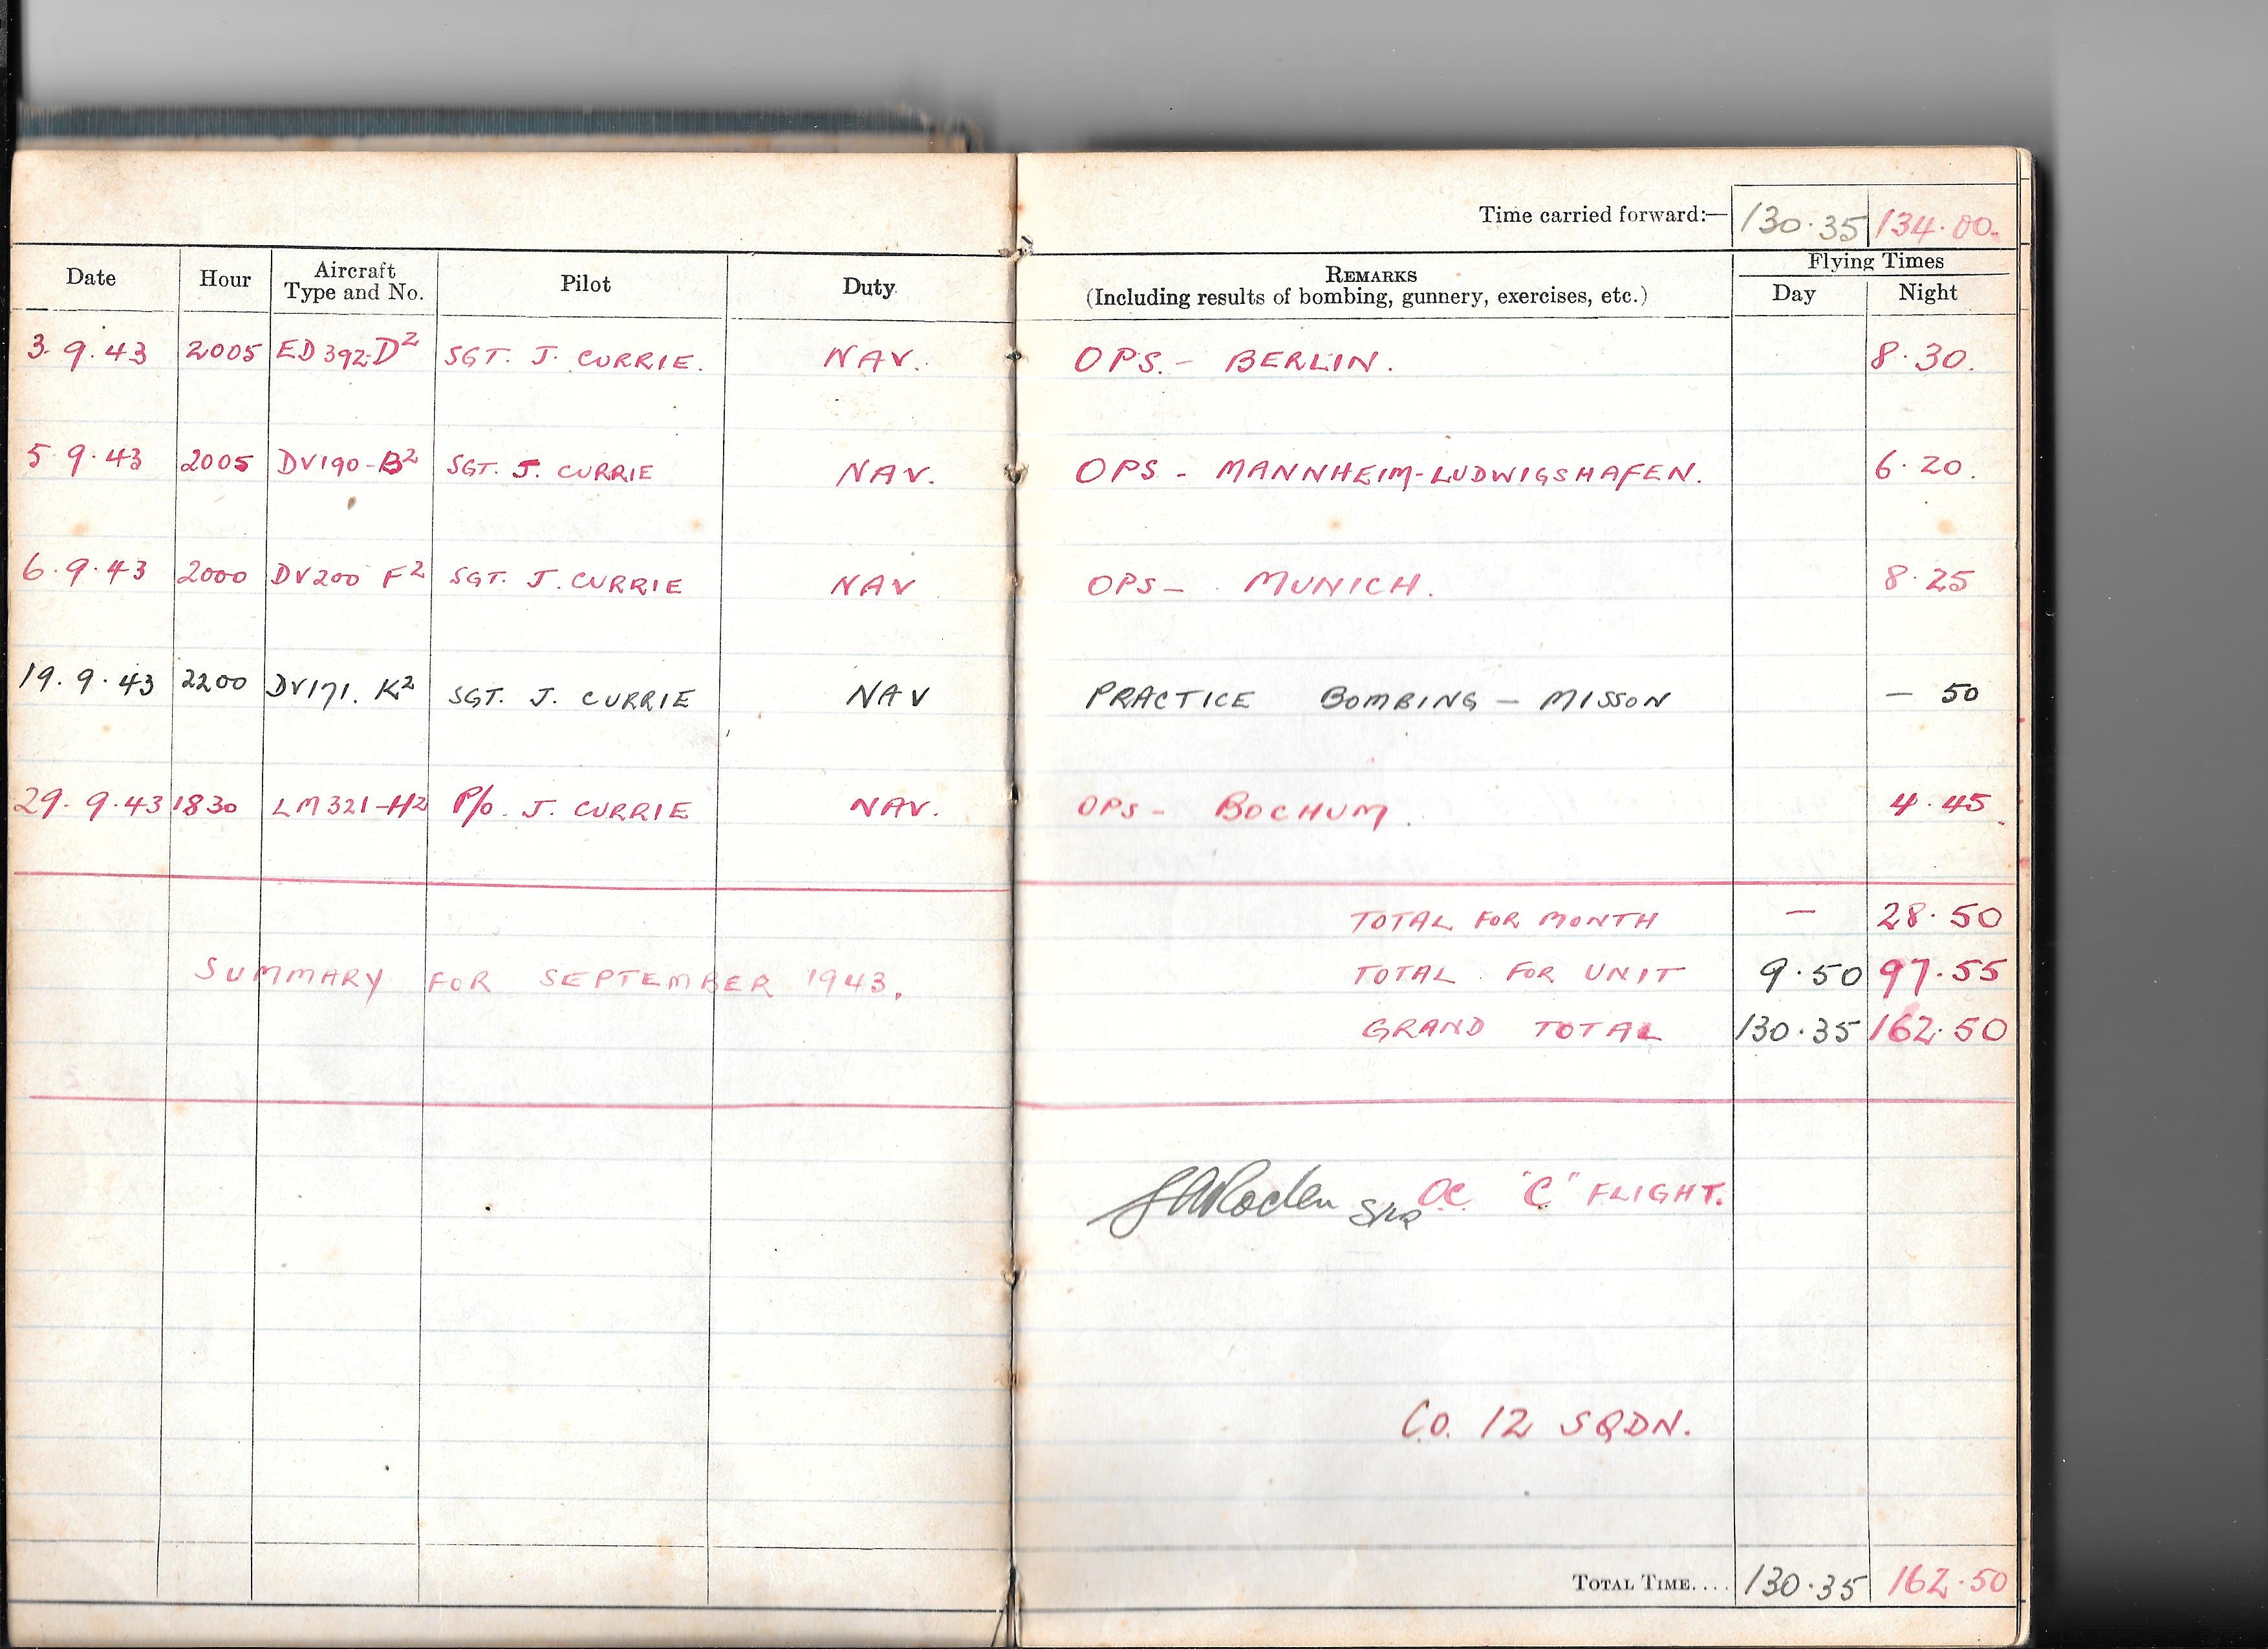 Time carried forward:— 130.35 134.00.
Date Hour Aircraft Type and No. Pilot Duty REMARKS (Including results of bombing, gunnery, exercises, etc.) Flying Times Day Night
3.9.43 2005 ED392-D² SGT. J. CURRIE. NAV. OPS. - BERLIN. 8.30.
5.9.43 2005 DV190-B² SGT. J. CURRIE NAV. OPS - MANNHEIM-LUDWIGSHAFEN. 6.20.
6.9.43 2000 DV200 F² SGT. J. CURRIE NAV OPS - MUNICH. 8.25
19.9.43 2200 DV171. K² SGT. J. CURRIE NAV PRACTICE BOMBING - MISSON — 50
29.9.43 1830 LM321-H² P/O. J. CURRIE NAV. OPS - BOCHUM. 4.45
TOTAL FOR MONTH — 28.50
SUMMARY FOR SEPTEMBER 1943. TOTAL FOR UNIT 9.50 97.55
GRAND TOTAL 130.35 162.50
S/LR OC "C" FLIGHT.
C.O. 12 SQDN.
TOTAL TIME.... 130.35 162.50